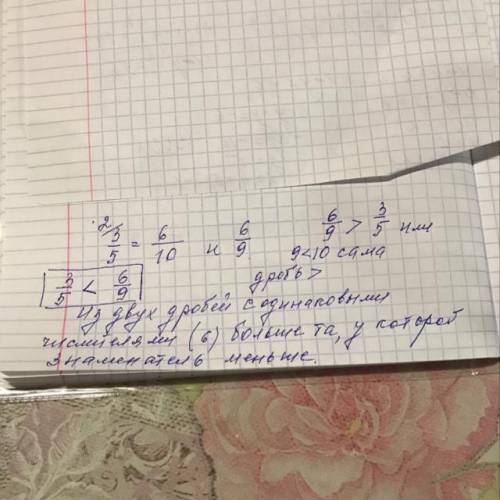 ·2/
3/5 = 6/10 и 6/9 6/9 > 3/5 или
9<10 сама
3/5 < 6/9 дробь >
Из двух дробей с одинаковыми
числителями (6) больше та, у которой
знаменатель меньше.